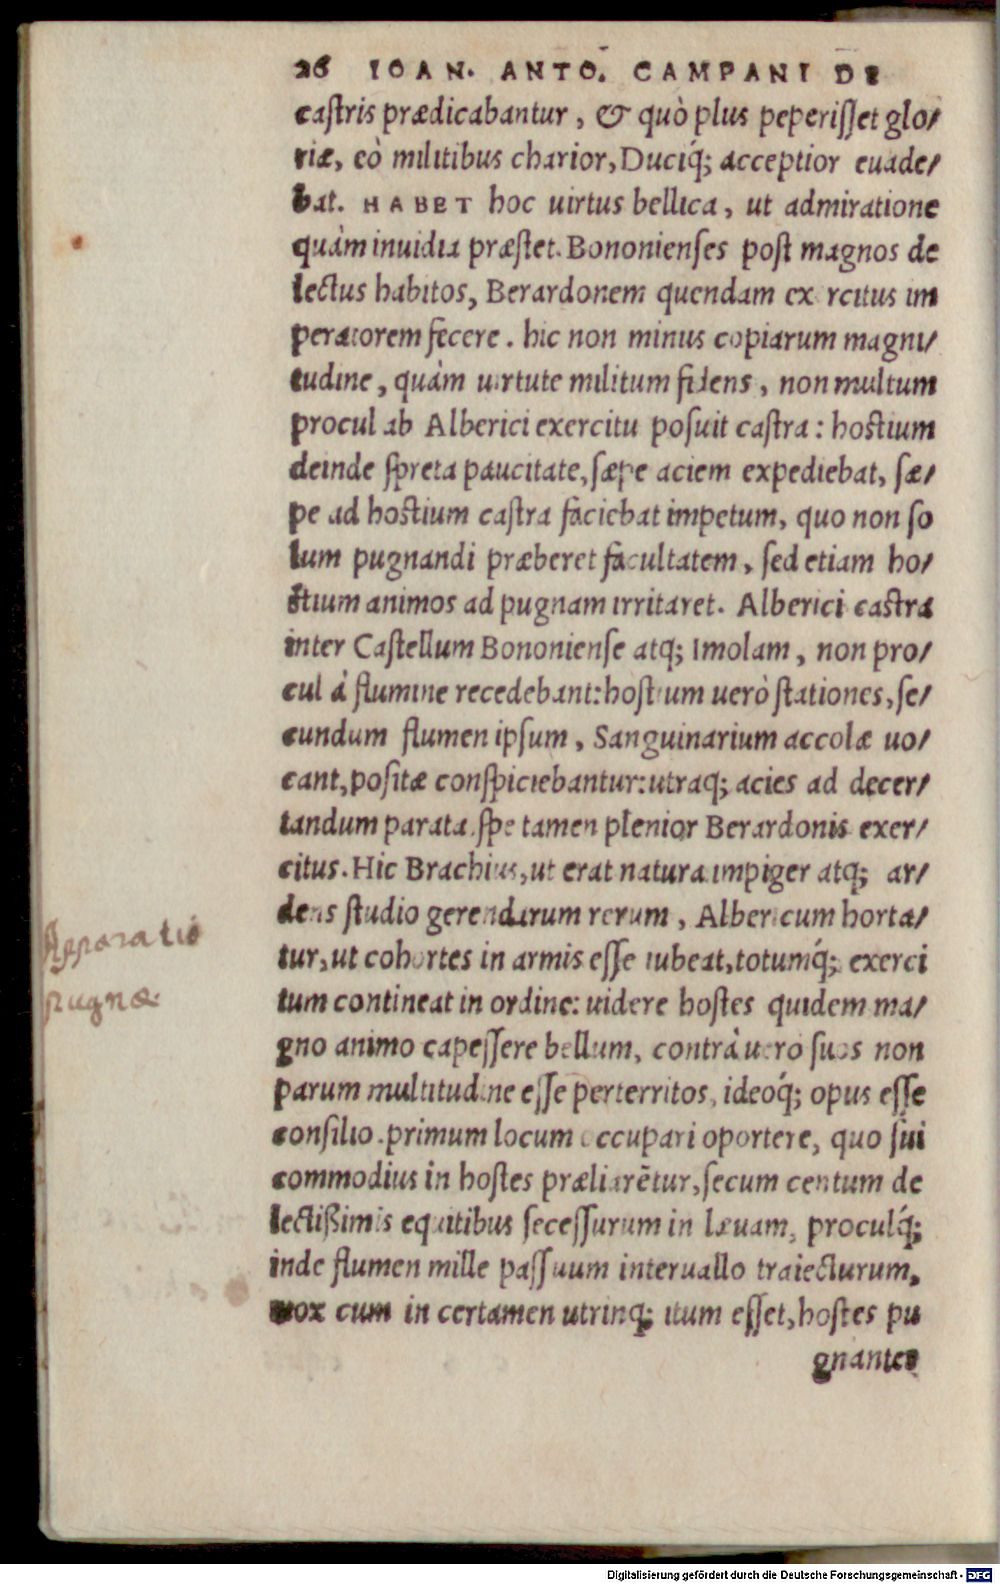 26 IOAN. ANTO. CAMPANI DE
castris prædicabantur, & quò plus peperisset glo/
riæ, eò militibus charior, Duciq́; acceptior euade/
bat. HABET hoc uirtus bellica, ut admiratione
quàm inuidia præstet. Bononienses post magnos de
lectus habitos, Berardonem quendam exercitus im
peratorem fecere. hic non minus copiarum magni/
tudine, quàm uirtute militum fidens, non multum
procul ab Alberici exercitu posuit castra: hostium
deinde spreta paucitate, sæpe aciem expediebat, sæ/
pe ad hostium castra faciebat impetum, quo non so
lum pugnandi præberet facultatem, sed etiam ho/
stium animos ad pugnam irritaret. Alberici castra
inter Castellum Bononiense atq; Imolam, non pro/
cul à flumine recedebant: hostium uerò stationes, se/
cundum flumen ipsum, Sanguinarium accolæ uo/
cant, positæ conspiciebantur: utraq; acies ad decer/
tandum parata. spe tamen plenior Berardonis exer/
citus. Hic Brachius, ut erat natura impiger atq; ar/
dens studio gerendarum rerum, Albericum horta/
tur, ut cohortes in armis esse iubeat, totumq́; exerci
tum contineat in ordine: uidere hostes quidem ma/
gno animo capessere bellum, contrà uero suos non
parum multitudine esse perterritos, ideoq́; opus esse
consilio. primum locum occupari oportere, quo sui
commodius in hostes præliarẽtur, secum centum de
lectißimis equitibus secessurum in læuam, proculq́;
inde flumen mille passuum interuallo traiecturum,
mox cum in certamen utrinq; itum esset, hostes pu
gnantes
Apparatio
pugnæ
Digitalisierung gefördert durch die Deutsche Forschungsgemeinschaft - DFG